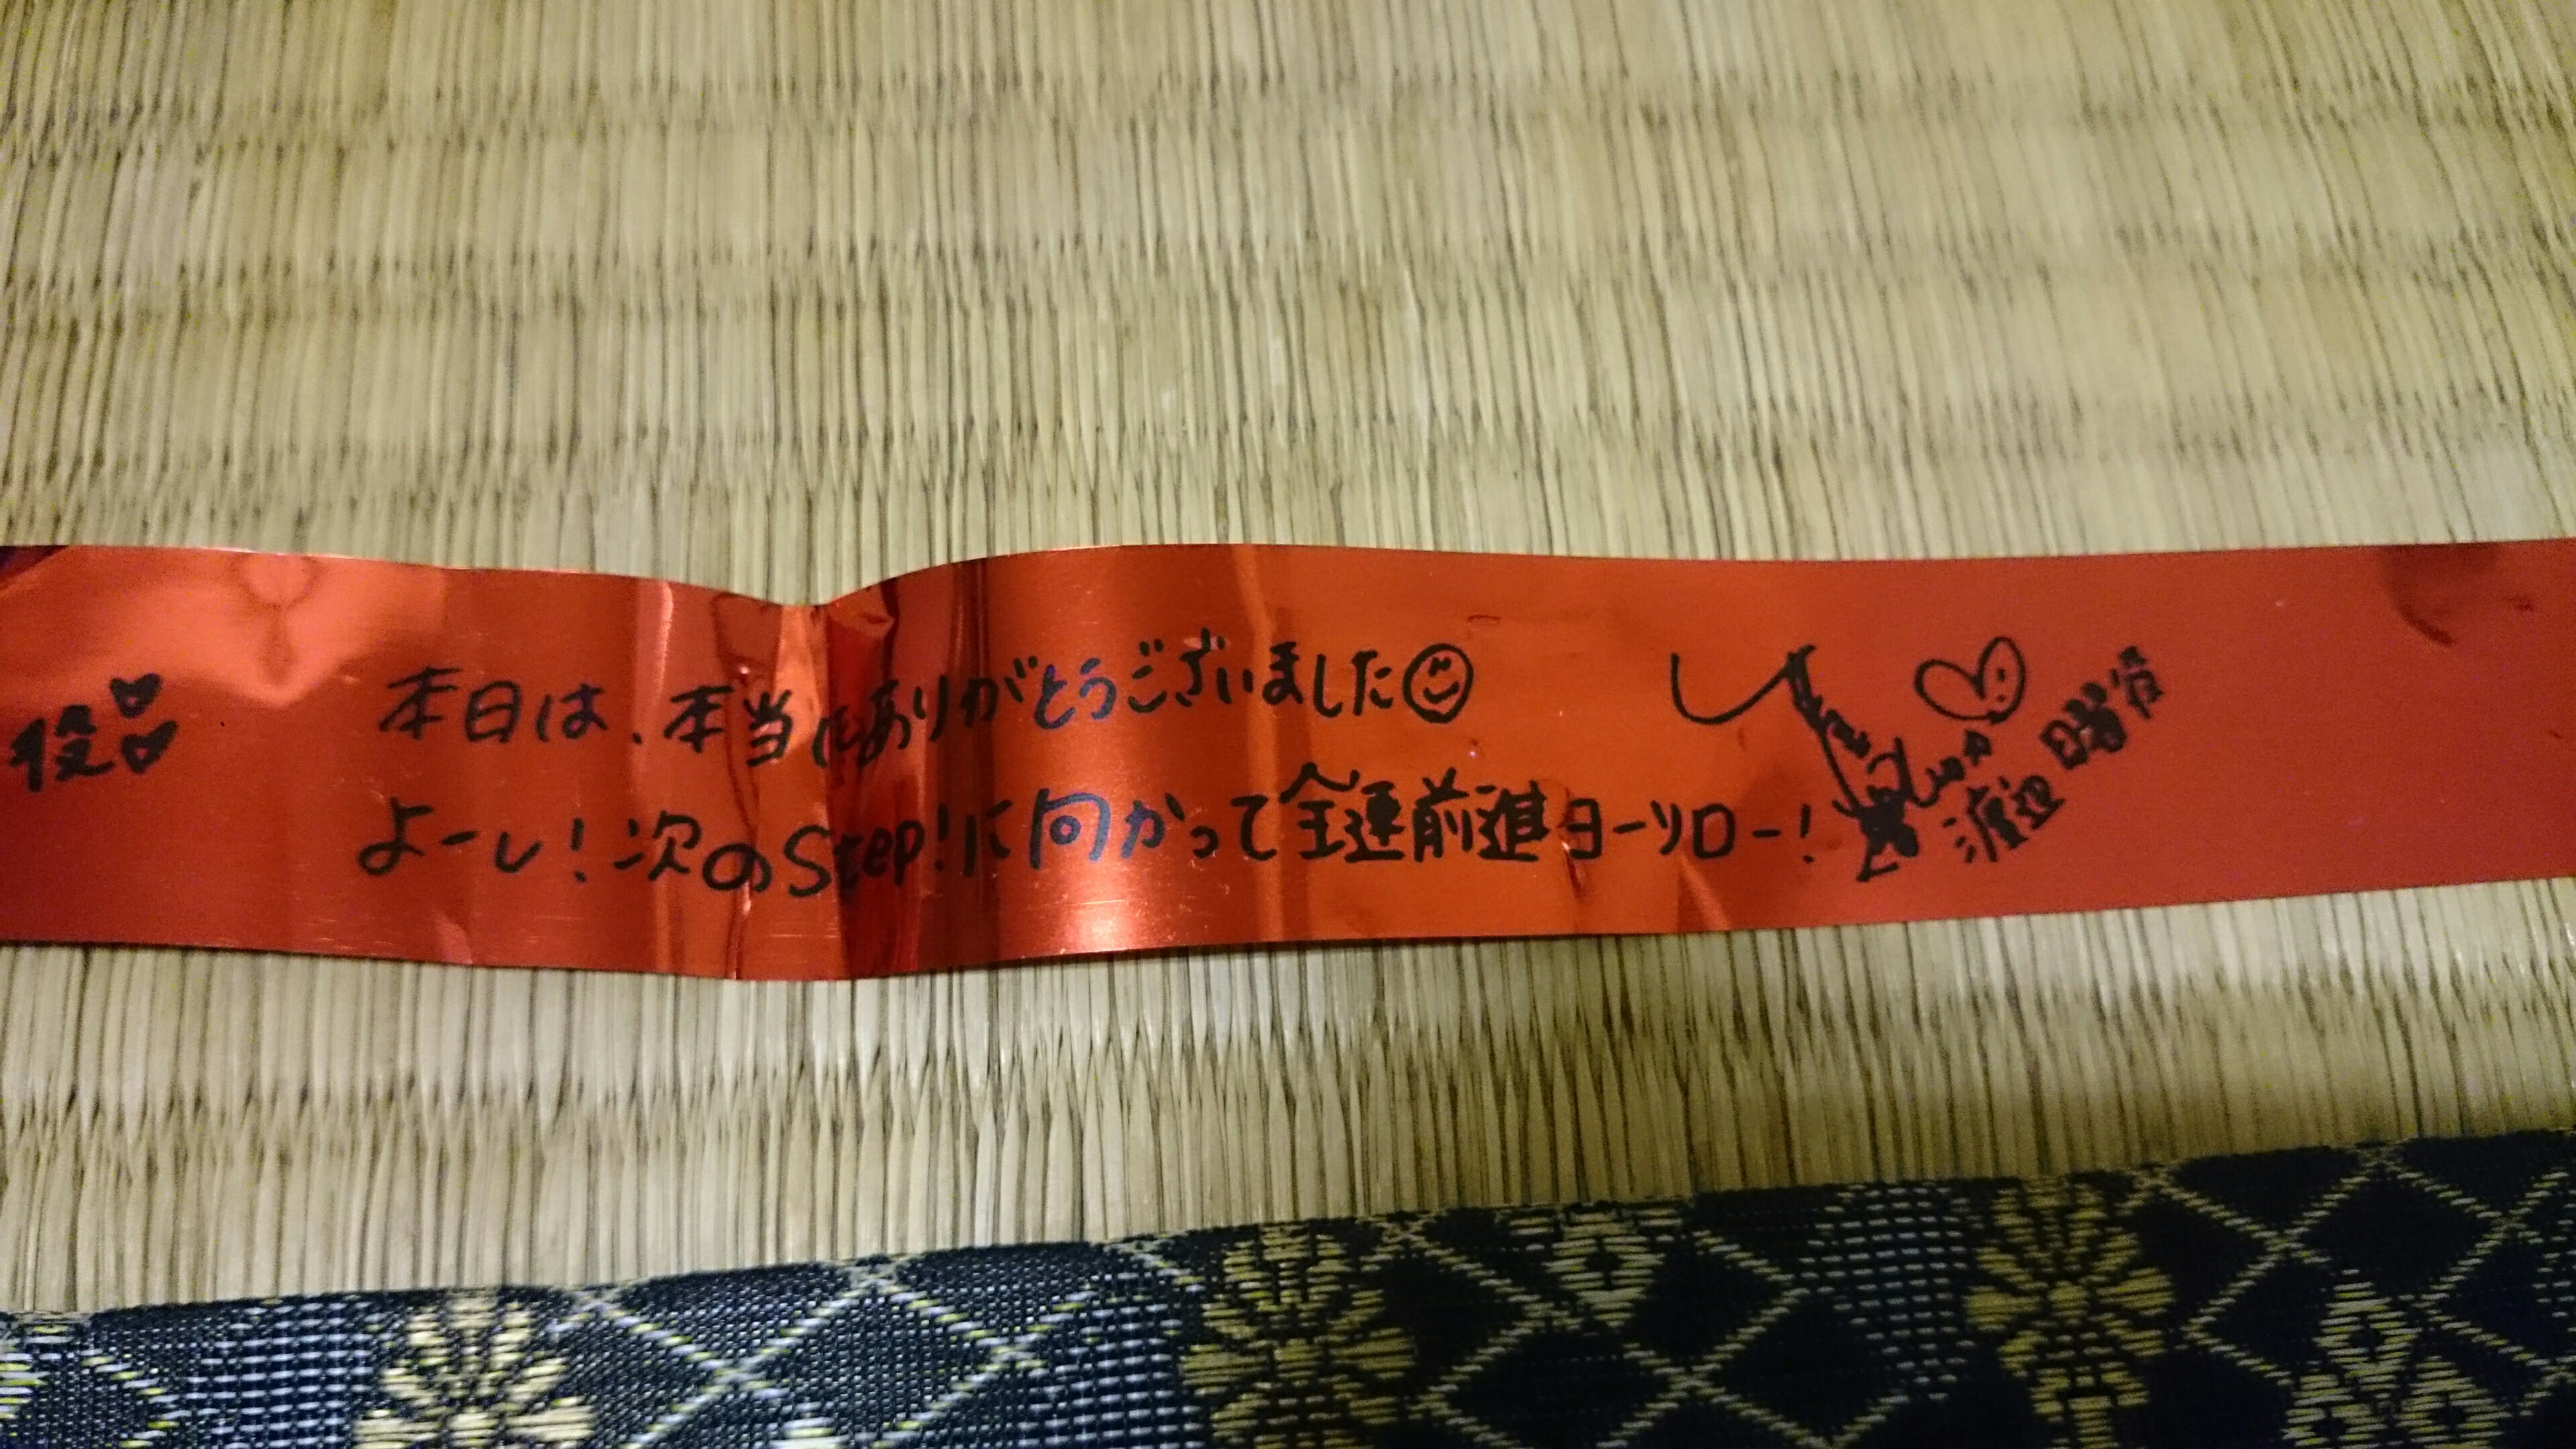 役
本日は、本当にありがとうございました
よーし!次のStep!に向かって全速前進ヨーソロー!
渡辺 曜役